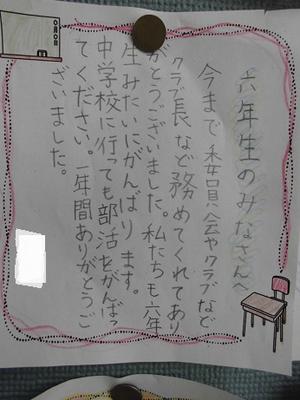 六年生のみなさんへ
今まで委員会やクラブなど
クラブ長など務めてくれてあり
がとうございました。私たちも六年
生みたいにがんばります。
中学校に行っても部活をがんばっ
てください。一年間ありがとうご
ざいました。